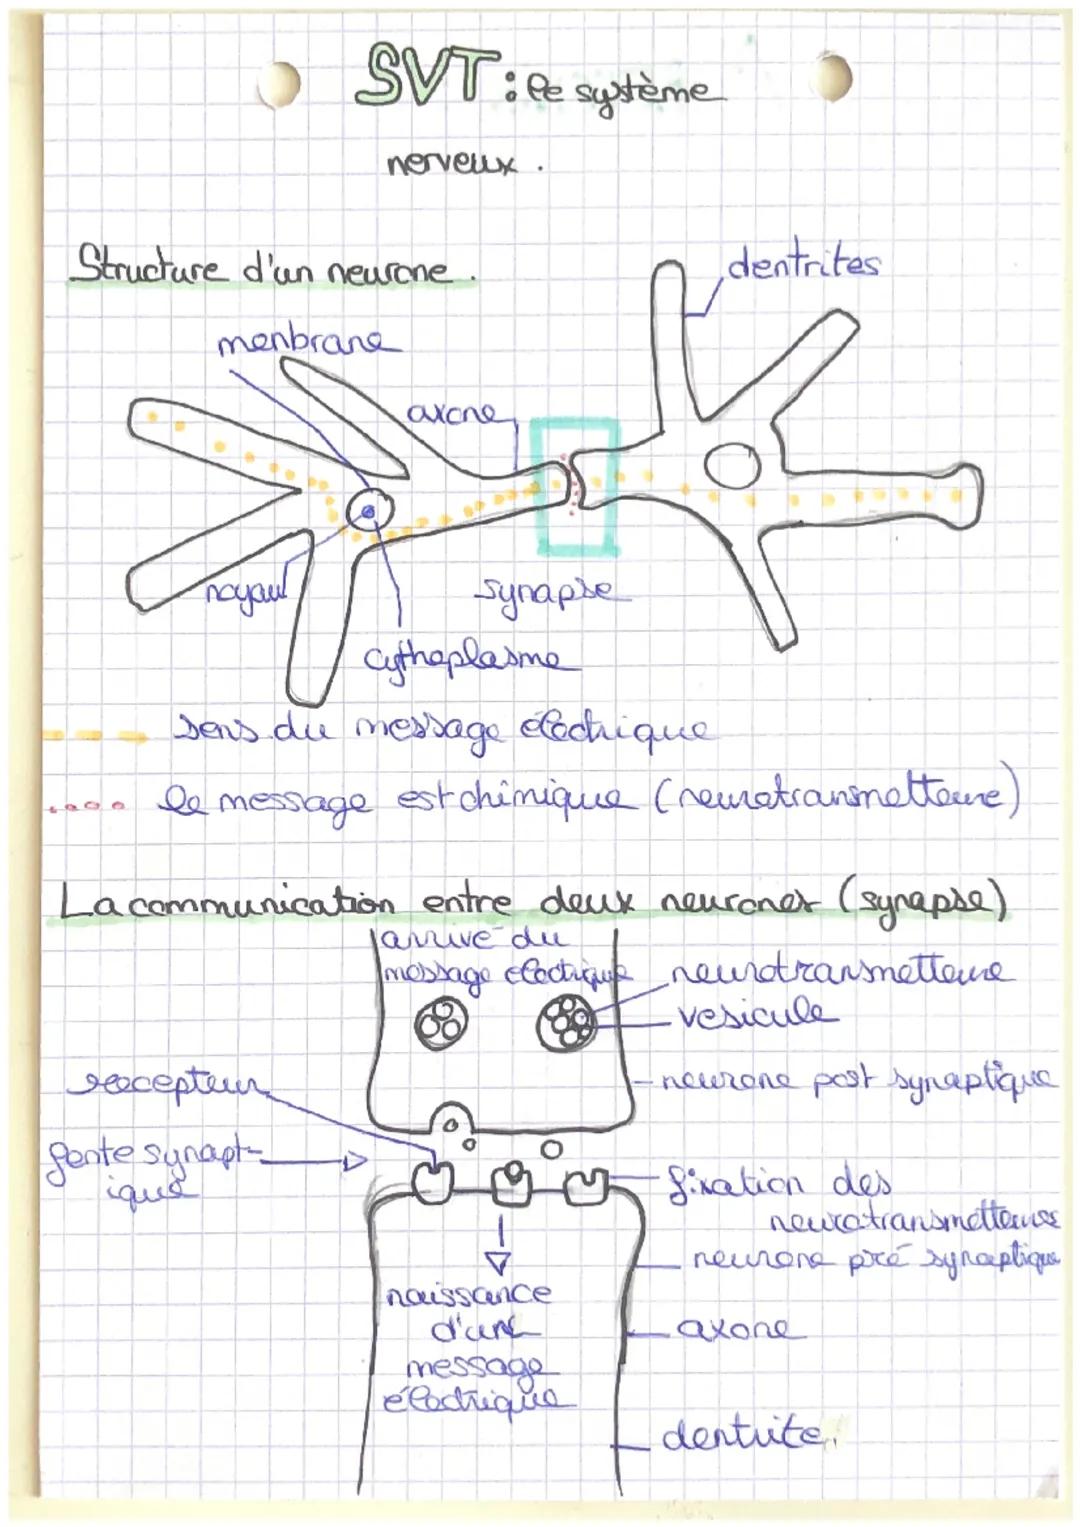 SVT : le système
nerveux .
Structure d'un neurone .
dentrites
menbrane
axone
noyau
synapse
cythoplasme
sens du message électrique
le message est chimique (neurotransmetteure)
La communication entre deux neurones (synapse)
arrivé du
message électrique
neurotransmetteure
vesicule
recepteur
neurone post synaptique
fente synapt-
ique
fixation des
neurotransmetteures
neurone pré synaptique
naissance
d'une
message
électrique
axone
dentrite